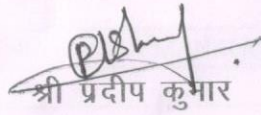 श्री प्रदीप कुमार